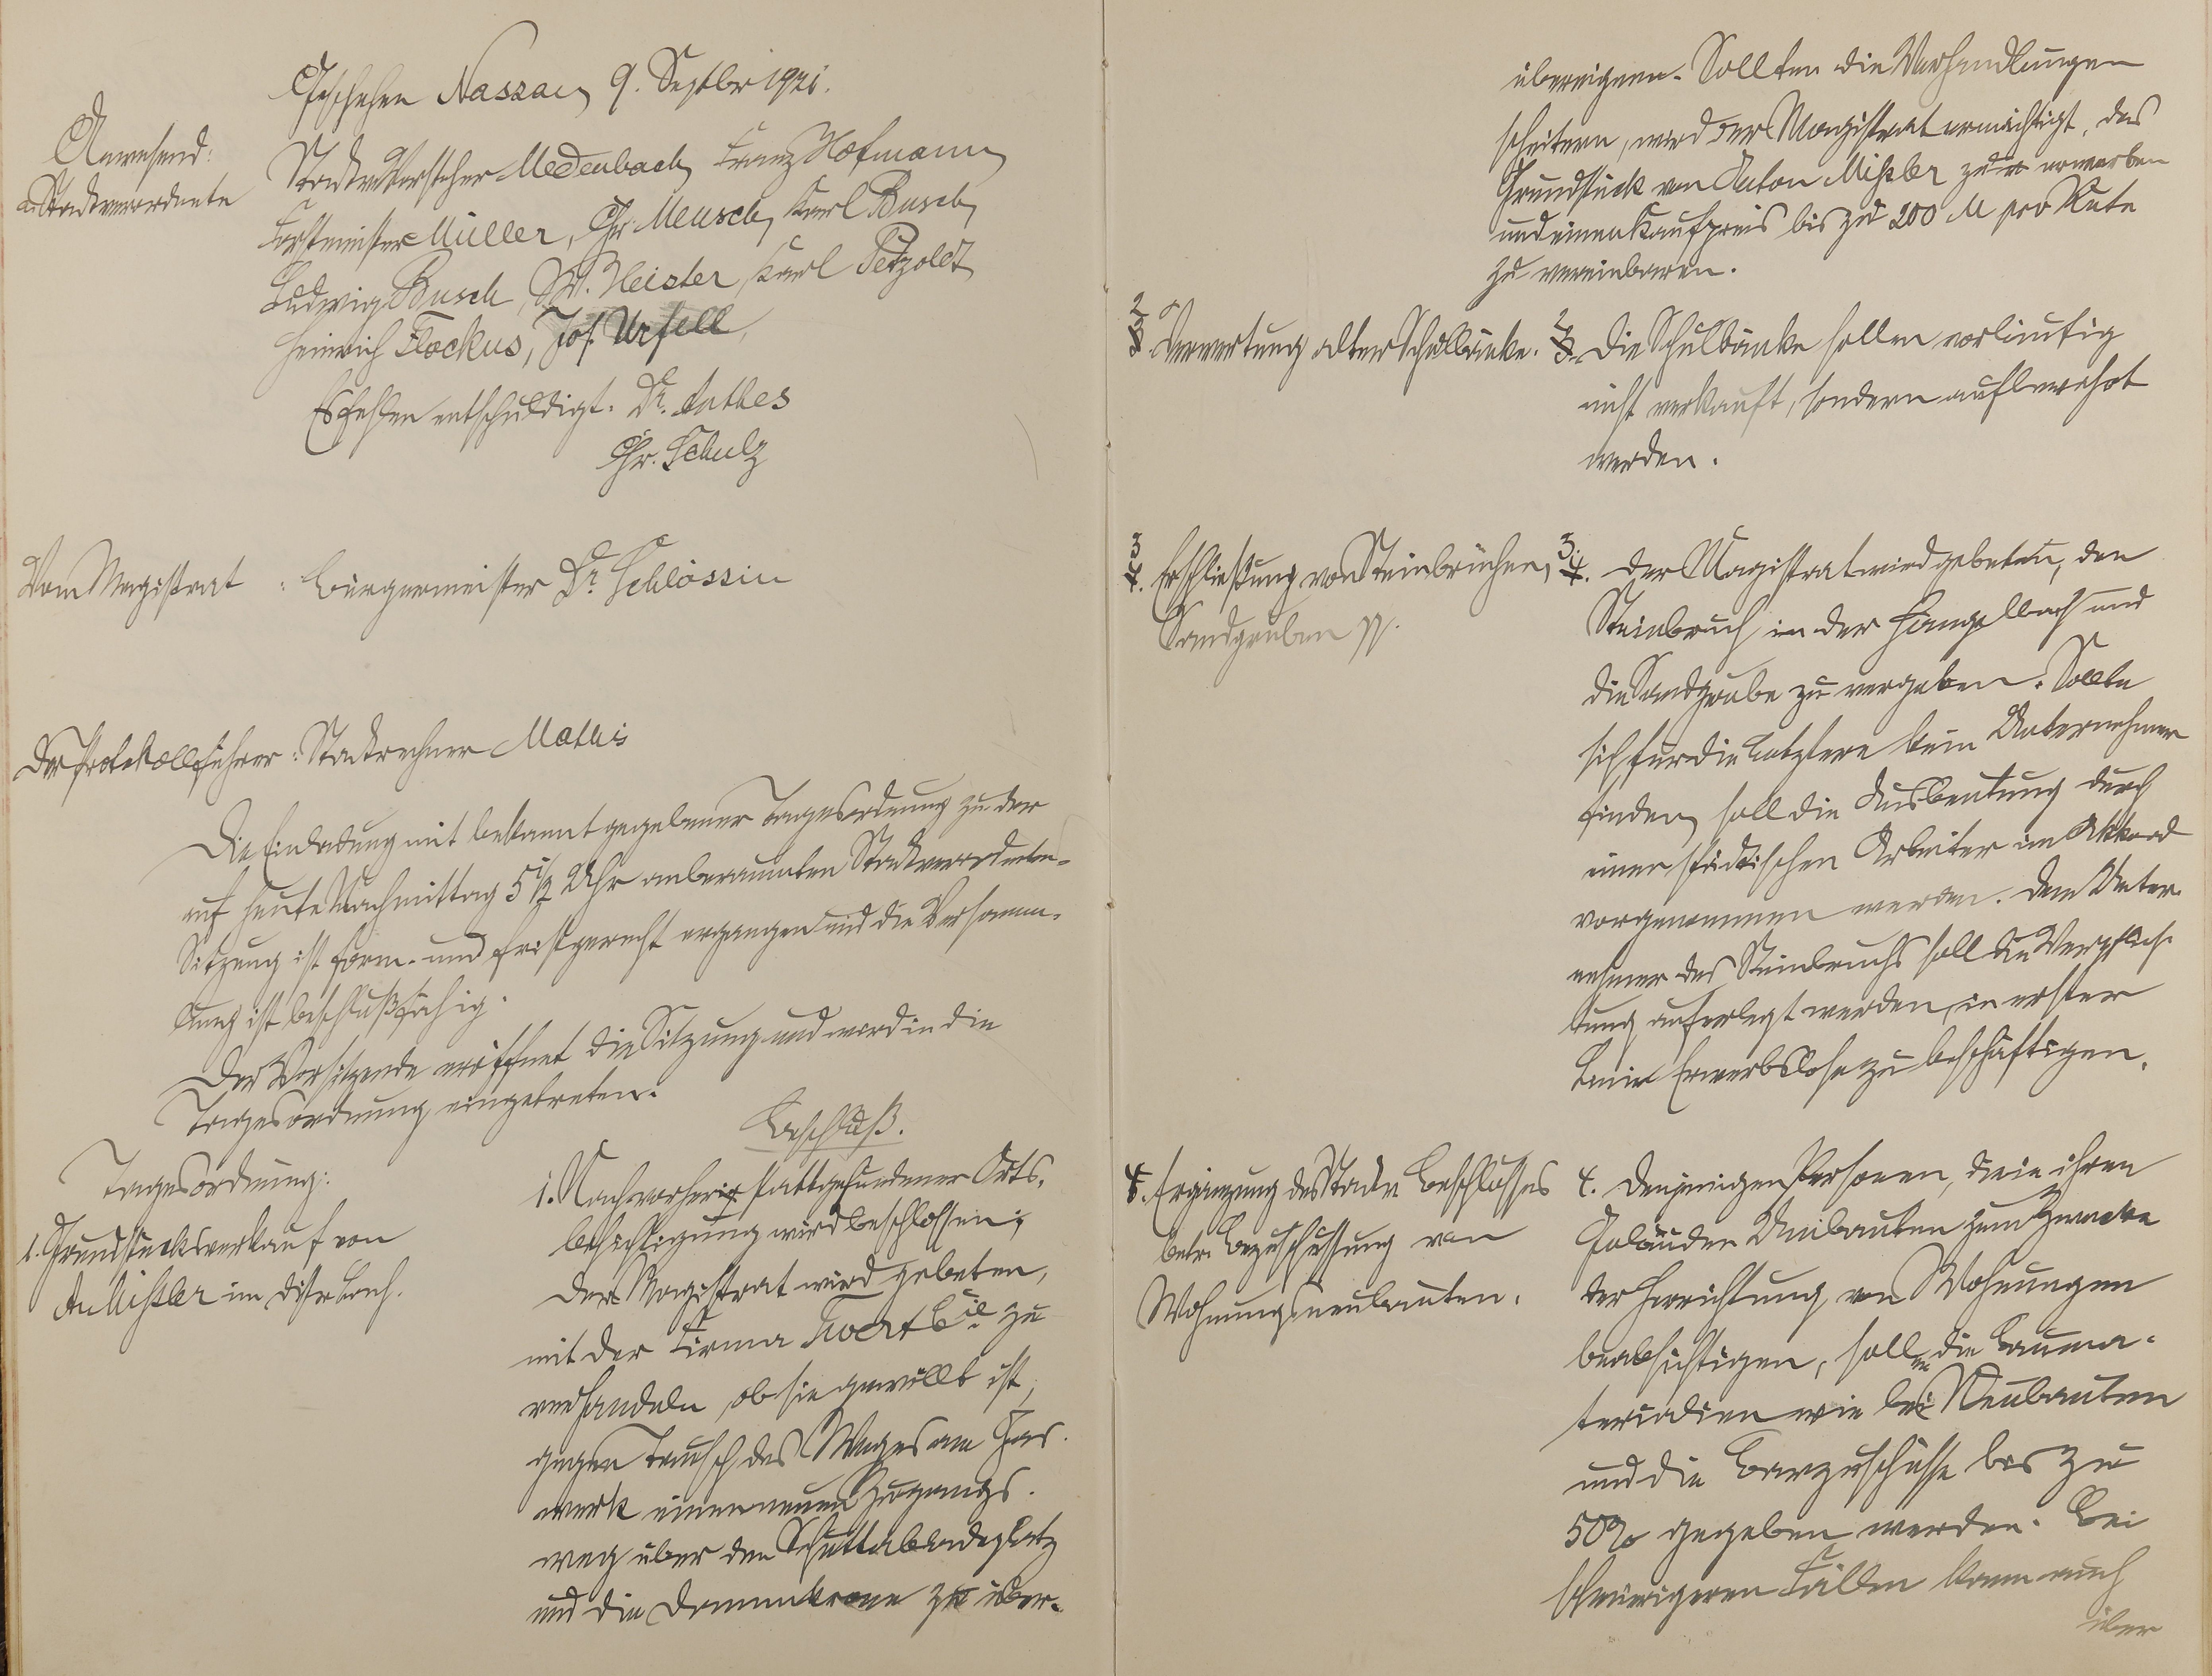 Geschehen Nassau, 9. Septbr 1921.
Anwesend:
a. Stadtverordnete
Stadtv. Vorsteher Medenbach, Franz Hofmann,
Forstmeister Müller, Chr. Meusch, Karl Busch,
Ludwig Busch, W. Heister, Karl Petzoldt,
Heinrich Flockus, Jos. Urfell,
Es fehlen entschuldigt: Dr. Anthes
Chr. Schulz
Vom Magistrat : Bürgermeister Dr. Schlössin
Der Protokollführer: Stadtrechner Mathis
Die Einladung mit bekannt gegebener Tagesordnung zu der
auf heute Nachmittag 5 1/2 Uhr anberaumten Stadtverordneten-
Sitzung ist form- und fristgerecht ergangen und die Versamm-
lung ist beschlußfähig.
Der Vorsitzende eröffnet die Sitzung und ward in die
Tagesordnung eingetreten.
Beschluß.
Tagesordnung:
1. Grundstücksverkauf von
A. Mißler im Distr. Bach.
1. Nach vorher stattgefundener Orts-
besichtigung wird beschlossen:
Der Magistrat wird gebeten,
mit der Firma Twerts Cie zu
verhandeln, ob sie gewillt ist,
gegen Tausch des Weges am Gas-
werk einen neuen Zugangs-
weg über den Schuttabladeplatz
und die Dammkrone zu über-
übereignen. Sollten die Verhandlungen
scheitern, wird der Magistrat ermächtigt, das
Grundstück von Anton Mißler zu erwerben
und einen Kaufpreis bis zu 200 M pro Rute
zu vereinbaren.
2. Verwertung alter Schulbänke.
2. Die Schulbänke sollen vorläufig
nicht verkauft, sondern aufbewahrt
werden.
3. Erschließung von Steinbrüchen,
Sandgruben pp.
3. Der Magistrat wird gebeten, den
Steinbruch in der Hangelbach und
die Sandgrube zu vergeben. Sollte
sich für die Letztere kein Unternehmer
finden, soll die Ausbeutung durch
einen städtischen Arbeiter im Akkord
vorgenommen werden. Dem Unter-
nehmer des Steinbruchs soll die Verpflich-
tung auferlegt werden, in erster
Linie Erwerbslose zu beschäftigen.
4. Ergänzung des Stadtv. Beschlusses
betr. Bezuschussung von
Wohnungsneubauten.
4. Denjenigen Personen, die in ihren
Gebäuden Umbauten zum Zwecke
der Herrichtung von Wohnungen
beabsichtigen, sollen die Bauma-
terialien wie bei Neubauten
und die Barzuschüsse bis zu
50% gegeben werden. Bei
schwierigeren Fällen kann auch
über